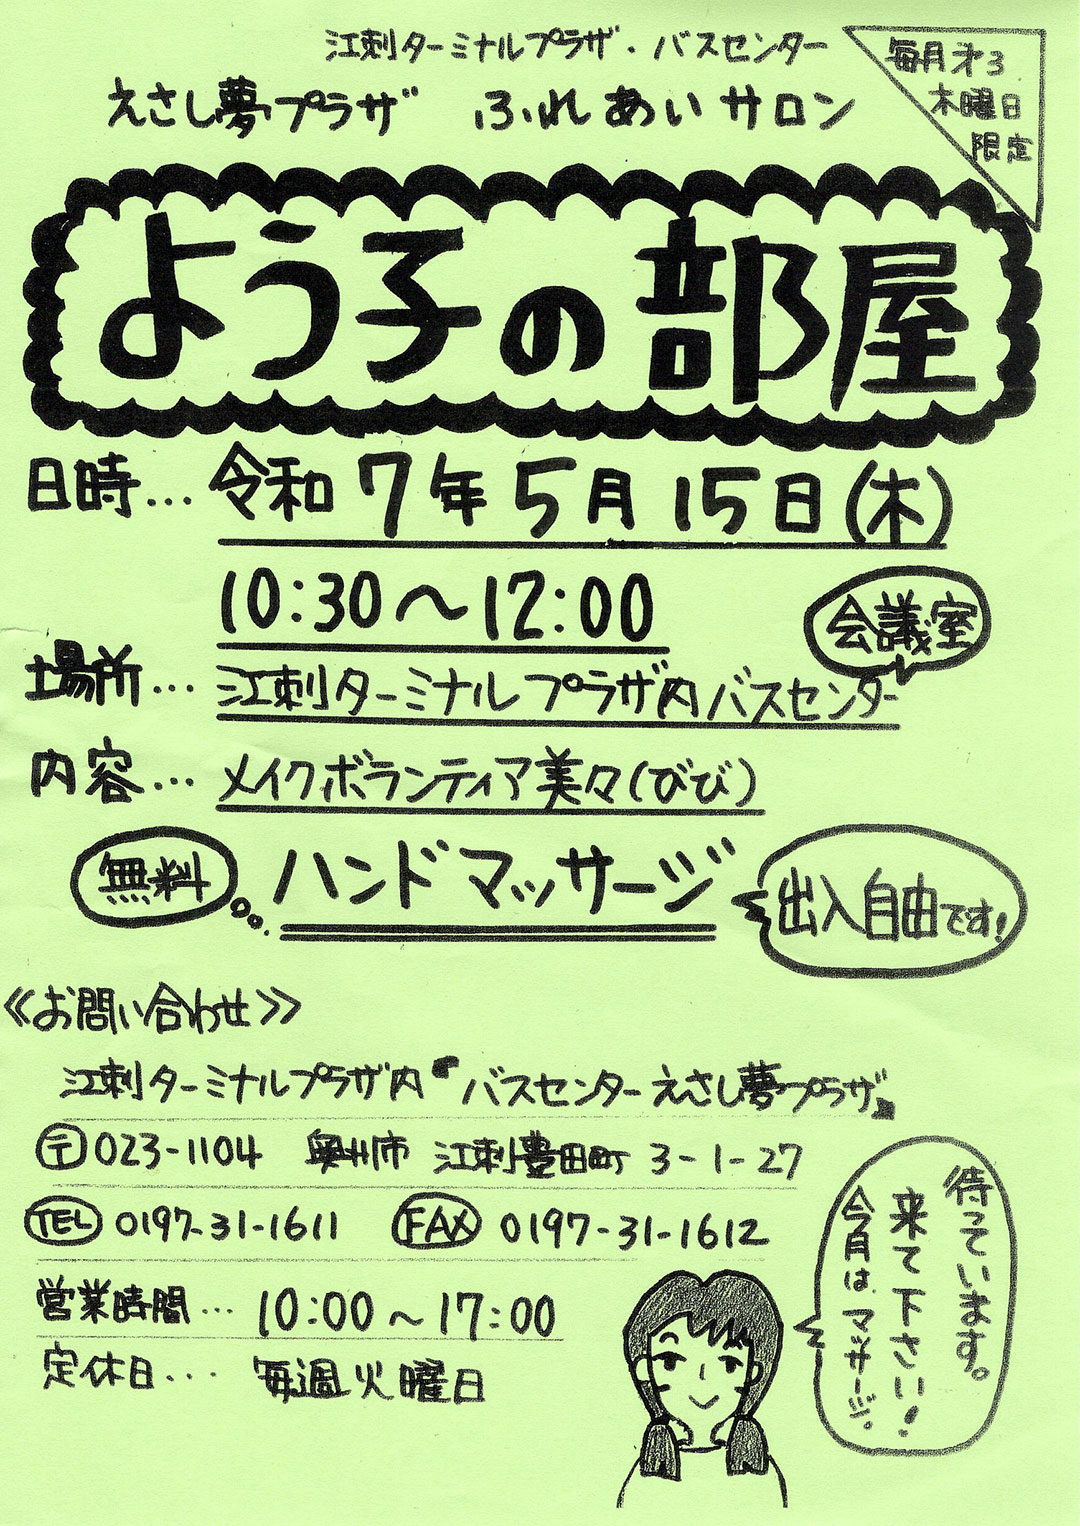 江刺ターミナルプラザ・バスセンター
えさし夢プラザ ふれあいサロン
毎月才3
木曜日
限定
よう子の部屋
日時…令和7年5月15日(木)
10:30～12:00
会議室
場所…江刺ターミナルプラザ内バスセンター
内容…メイクボランティア美々(びび)
無料
ハンドマッサージ
出入自由です!
≪お問い合わせ≫
江刺ターミナルプラザ内『バスセンターえさし夢プラザ』
〒023-1104 奥州市 江刺豊田町 3-1-27
TEL 0197-31-1611 FAX 0197-31-1612
営業時間… 10:00～17:00
定休日… 毎週火曜日
待っています。
来て下さい!
今月は、マッサージ。